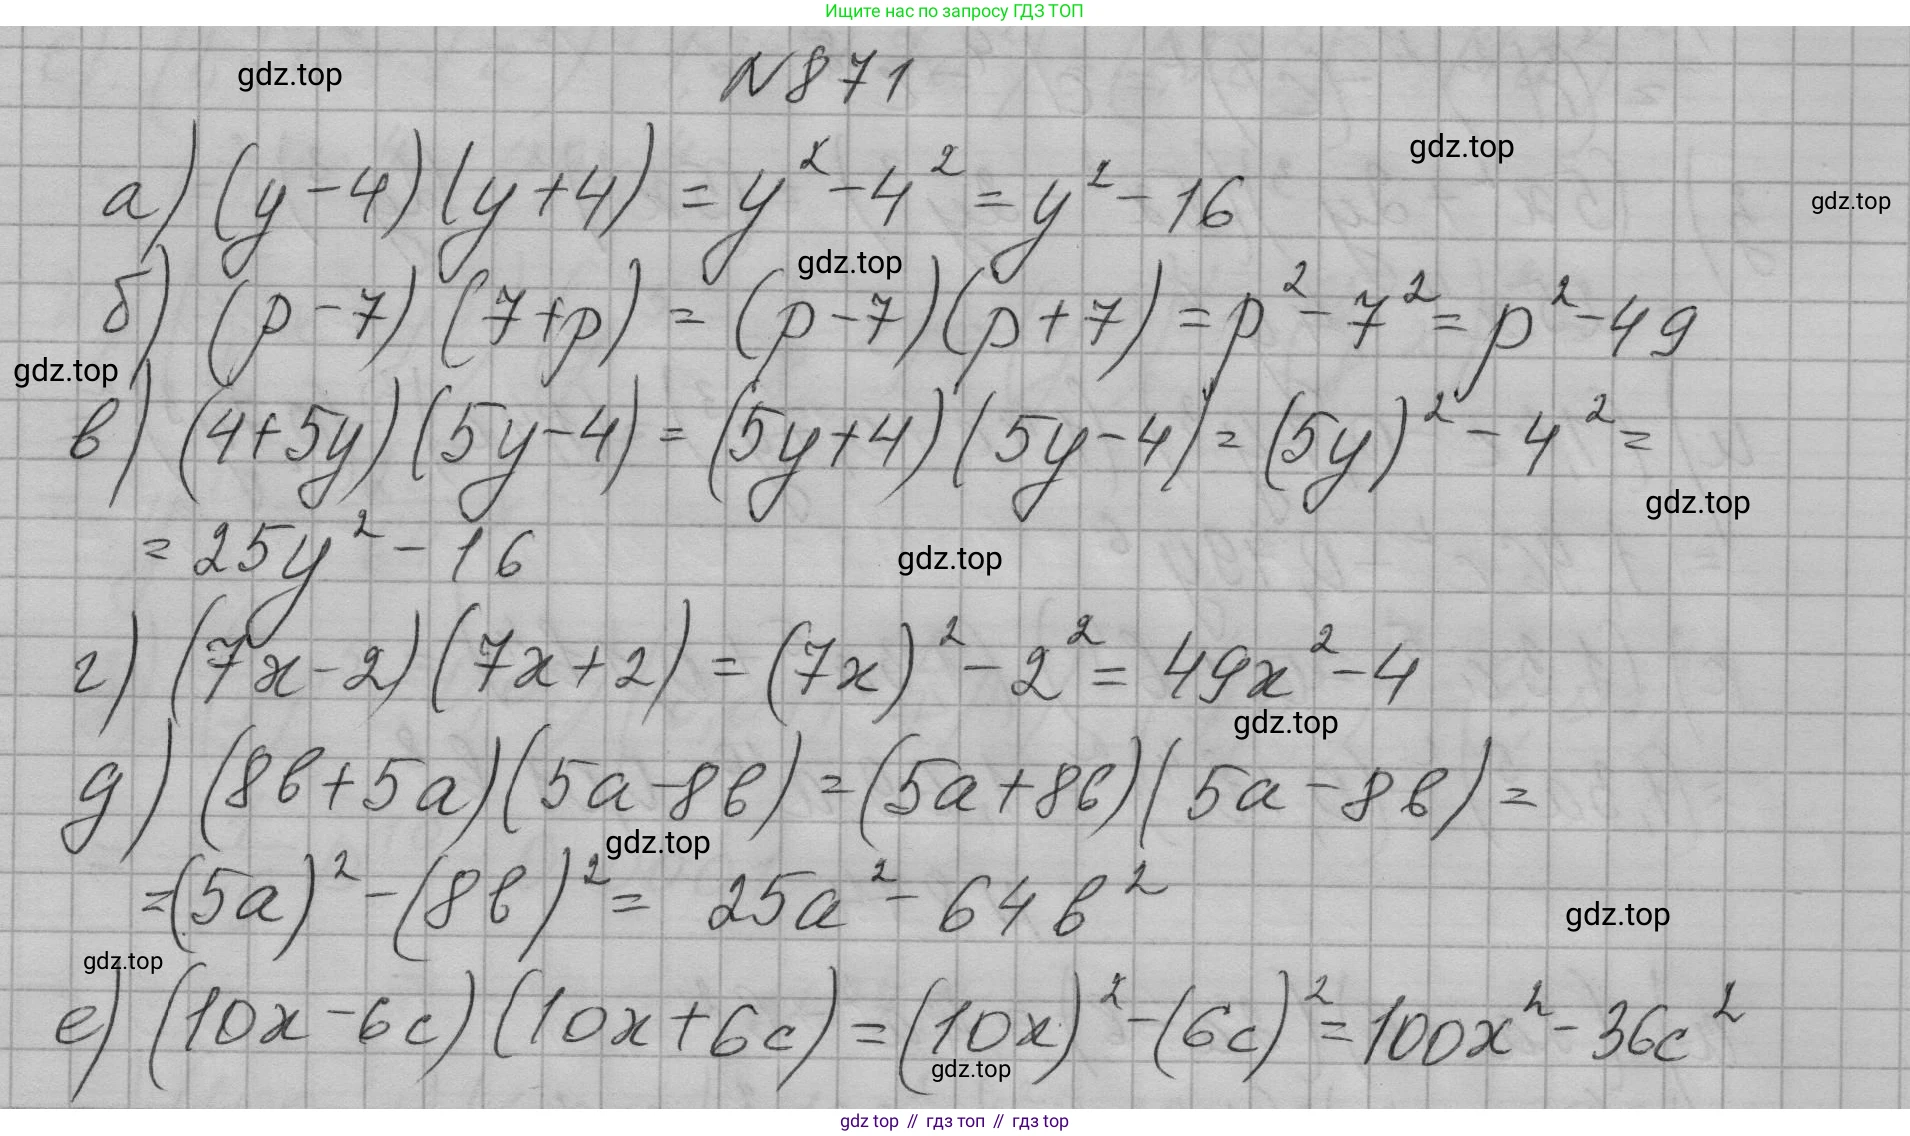 Ищите нас по запросу ГДЗ ТОП
gdz.top
N 871
gdz.top
а) (y-4)(y+4) = y²-4² = y²-16
gdz.top
gdz.top
б) (p-7)(7+p) = (p-7)(p+7) = p²-7² = p²-49
gdz.top
в) (4+5y)(5y-4) = (5y+4)(5y-4) = (5y)²-4² =
gdz.top
= 25y²-16
gdz.top
г) (7x-2)(7x+2) = (7x)²-2² = 49x²-4
gdz.top
д) (8в+5а)(5а-8в) = (5а+8в)(5а-8в) =
gdz.top
=(5а)²-(8в)² = 25а²-64в²
gdz.top
gdz.top
е) (10x-6c)(10x+6c) = (10x)²-(6c)² = 100x²-36c²
gdz.top
gdz top // гдз топ // гдз top